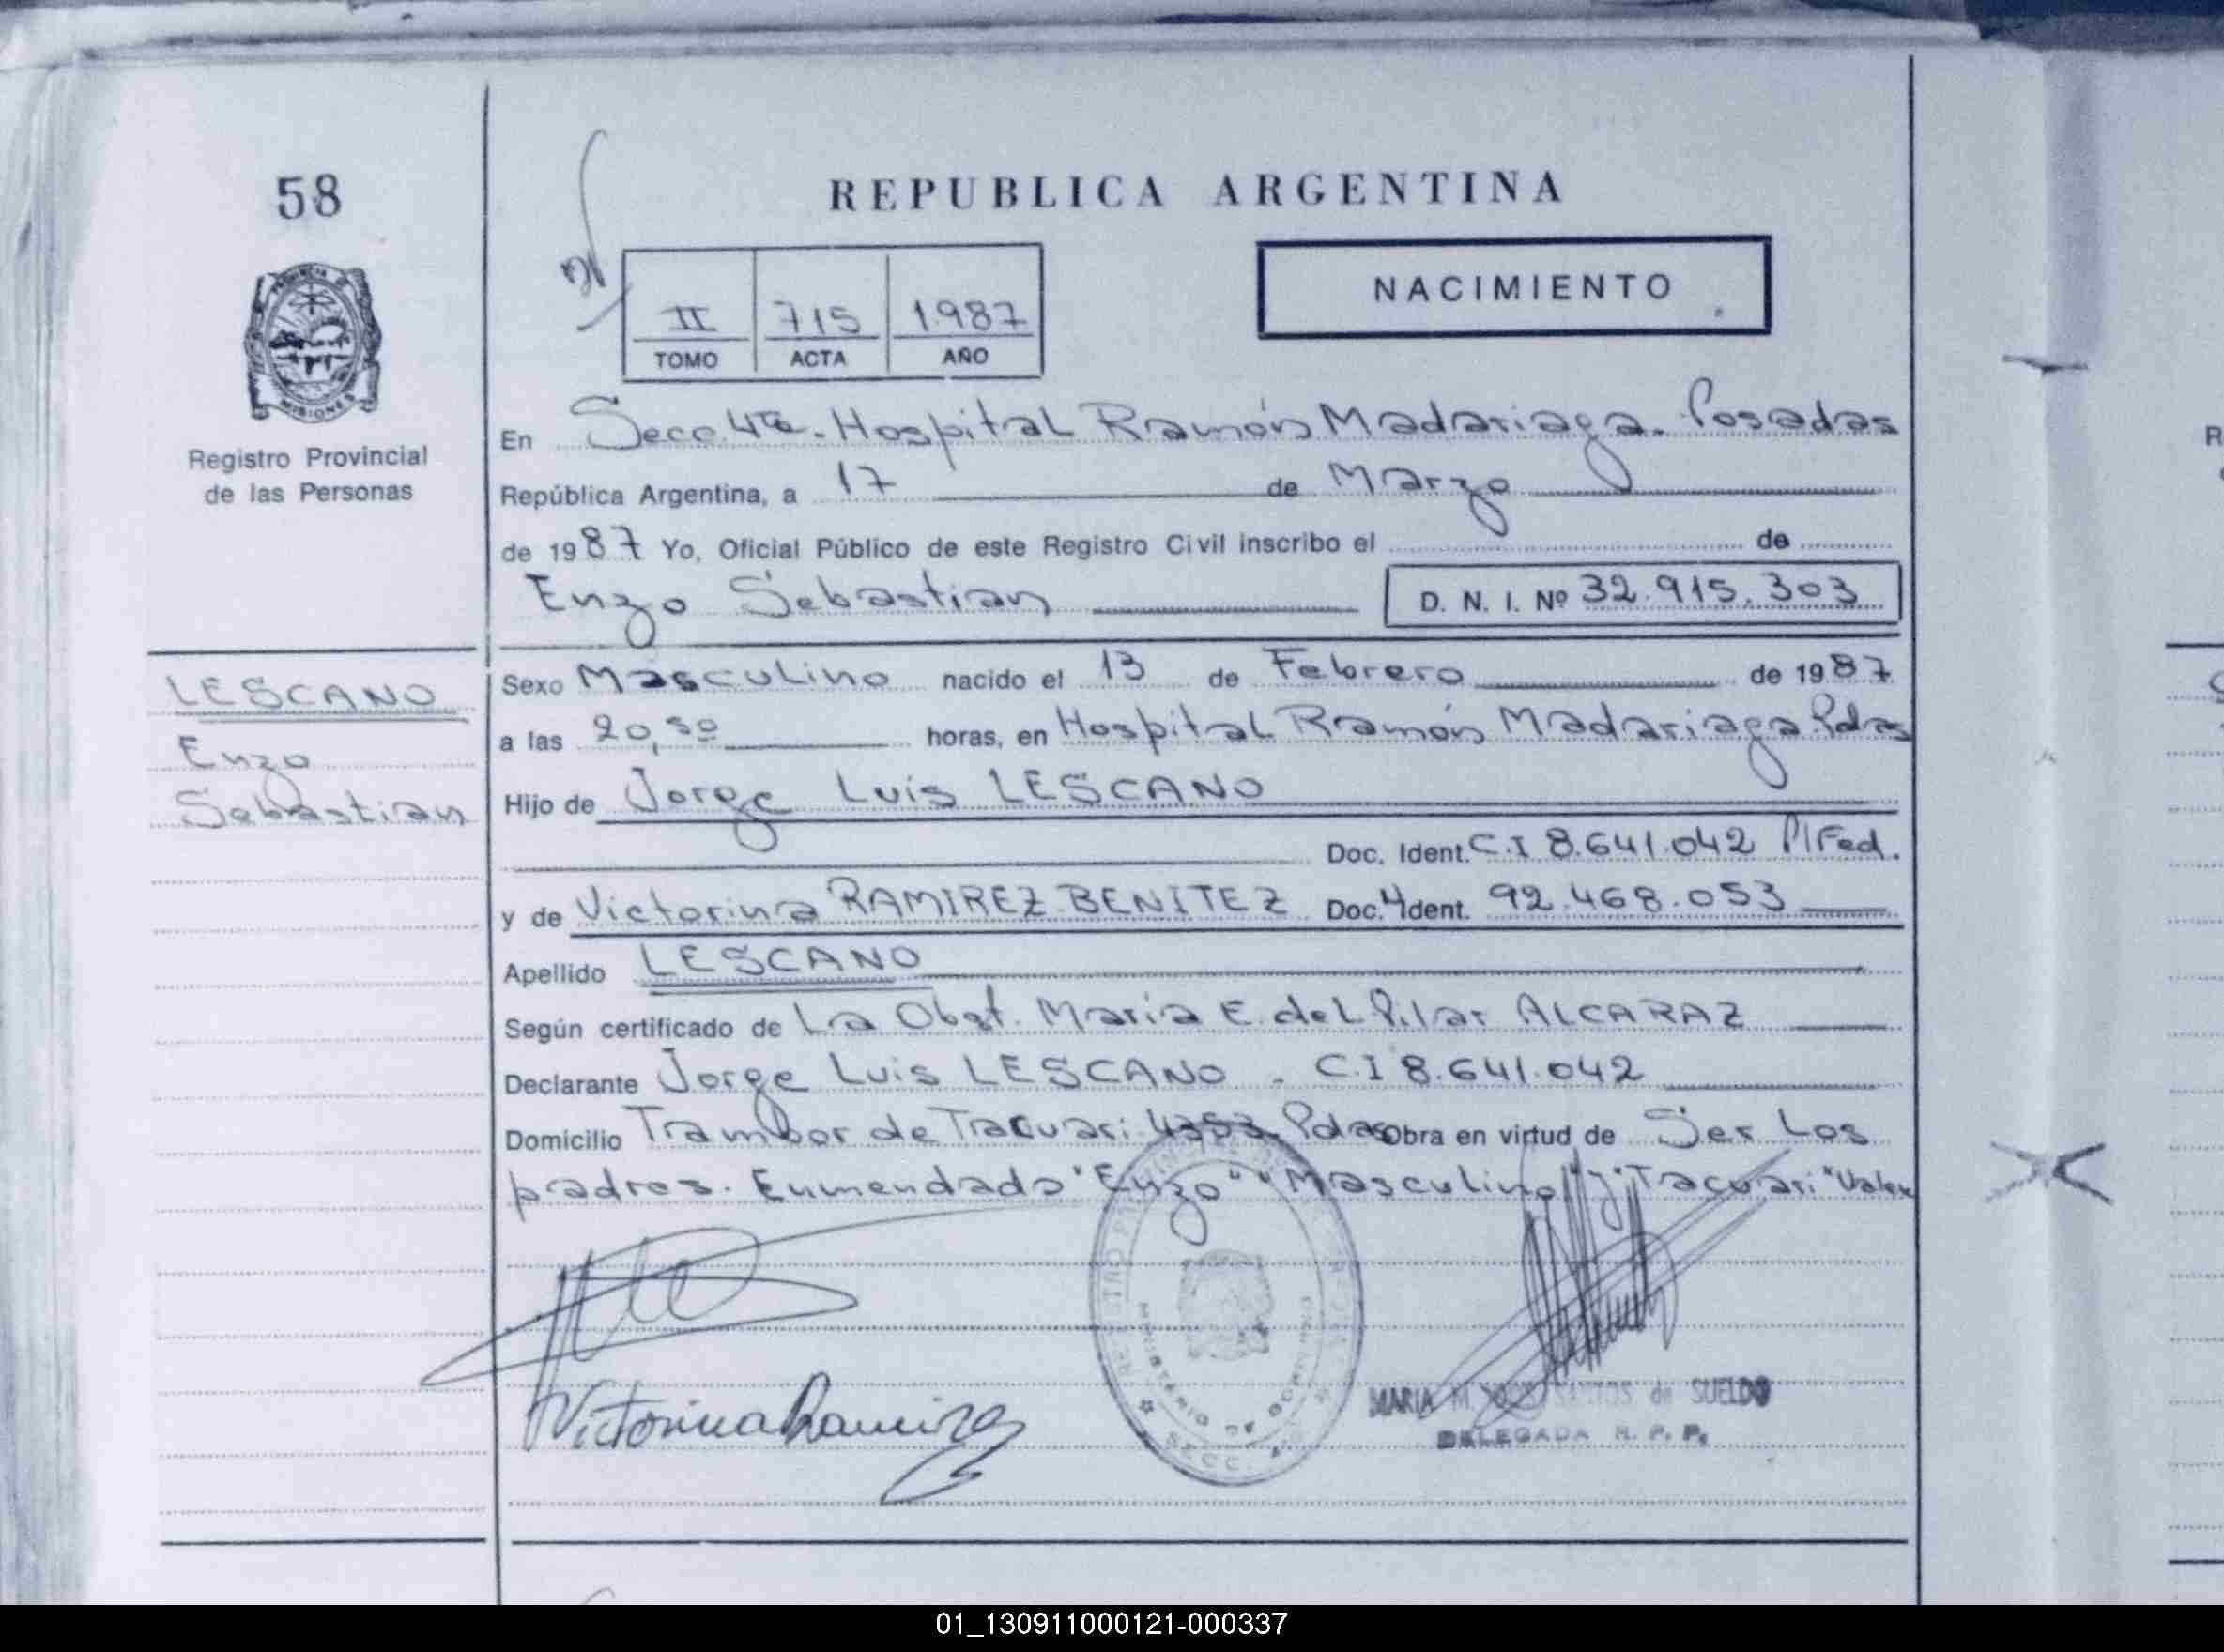 58
REPUBLICA ARGENTINA
II 715 1987
TOMO ACTA AÑO
NACIMIENTO
MISIONES
Registro Provincial
de las Personas
En Secc 4ta. Hospital Ramón Madariaga. Posadas
República Argentina, a 17 de Marzo
de 1987 Yo, Oficial Público de este Registro Civil inscribo el de
Enzo Sebastian D. N. I. Nº 32.915.303
LESCANO
Enzo
Sebastian
Sexo Masculino nacido el 13 de Febrero de 1987
a las 20,30 horas, en Hospital Ramón Madariaga Pdas
Hijo de Jorge Luis LESCANO
Doc. Ident. C.I 8.641.042 P/Fed.
y de Victorina RAMIREZ BENITEZ Doc. Ident. 92.468.053
Apellido LESCANO
Según certificado de La Obst. Maria E. del Pilar ALCARAZ
Declarante Jorge Luis LESCANO . C.I 8.641.042
Domicilio Trambor de Tacuari 4353 Pdas Obra en virtud de Ser Los
padres. Enmendado "Enzo" "Masculino" y "Tacuari" Valen
Victorina Ramirez
MINISTERIO DE GOBIERNO
MARIA M. SANTOS de SUELDO
DELEGADA R. P. P.
01_130911000121-000337